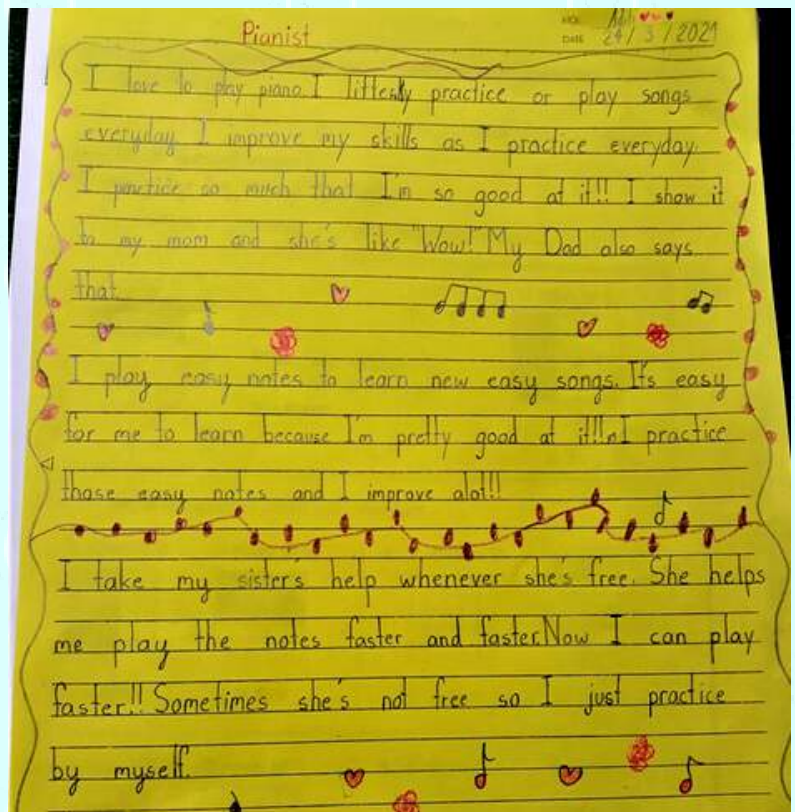 Pianist
DATE 24/3/2021
I love to play piano. I litterly practice or play songs
everyday. I improve my skills as I practice everyday.
I practice so much that I'm so good at it!! I show it
to my mom and she's like "Wow!" My Dad also says
that.
I play easy notes to learn new easy songs. It's easy
for me to learn because I'm pretty good at it!! I practice
those easy notes and I improve alot!!
I take my sister's help whenever she's free. She helps
me play the notes faster and faster. Now I can play
faster!! Sometimes she's not free so I just practice
by myself.